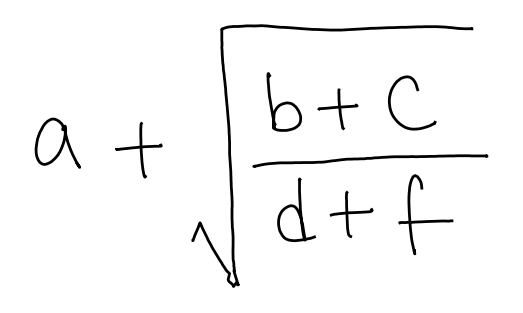 a + √((b + c)/(d + f))